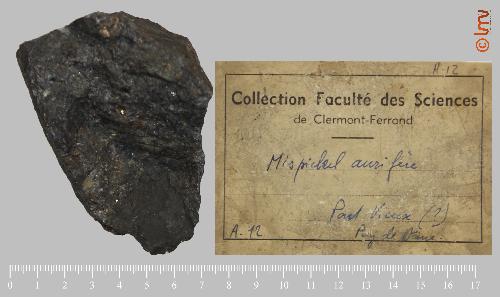 © lmv
A.12
Collection Faculté des Sciences
de Clermont-Ferrand
Mispickel aurifère
Pont Vieux (?)
A.12 Puy de Dôme.
0 1 2 3 4 5 6 7 8 9 10 11 12 13 14 15 16 17